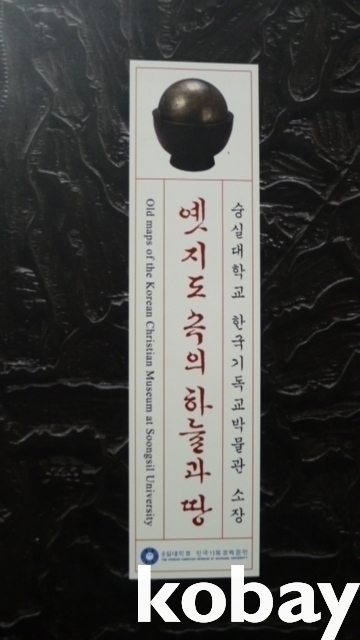 숭실대학교 한국기독교박물관 소장
옛 지도 속의 하늘과 땅
Old maps of the Korean Christian Museum at Soongsil University
숭실대학교 한국기독교박물관
THE KOREAN CHRISTIAN MUSEUM AT SOONGSIL UNIVERSITY
kobay